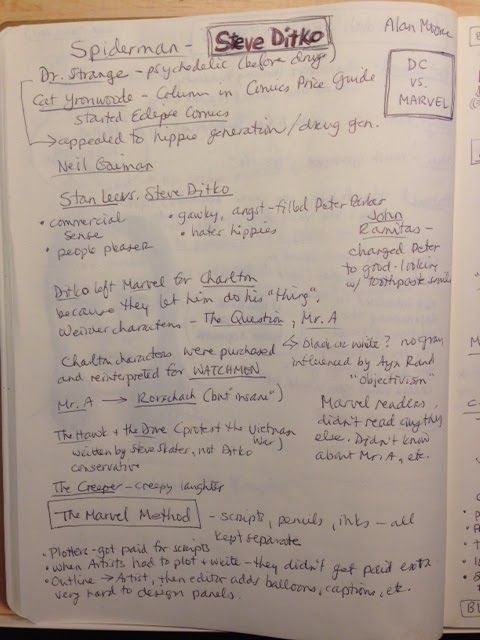 Alan Moore
Spiderman - Steve Ditko
DC
VS.
MARVEL
Dr. Strange - psychedelic (before drugs)
Cat Yronwoode - Column in Comics Price Guide
started Eclipse Comics
appealed to hippie generation/drug gen.
Neil Gaiman
Stan Lee vs. Steve Ditko
• commercial
sense
• people pleaser
• gawky, angst-filled Peter Parker
• hates hippies
John
Ramitas -
changed Peter
to good-looking
w/ toothpaste smile
Ditko left Marvel for Charlton
because they let him do his "thing",
weirder characters - The Question, Mr. A
black or white? no gray
influenced by Ayn Rand
"objectivism"
Charlton characters were purchased
and reinterpreted for WATCHMEN
Mr. A → Rorschach (but "insane")
Marvel readers
didn't read anything
else. Didn't know
about Mr. A, etc.
The Hawk + the Dove (protest the Vietnam
War)
written by Steve Skates, not Ditko
conservative
The Creeper - creepy laughter
The Marvel Method - scripts, pencils, inks - all
kept separate
• Plotters - got paid for scripts
• When Artists had to plot + write - they didn't get paid extra
• Outline → Artist, then editor adds balloons, captions, etc.
very hard to design panels.